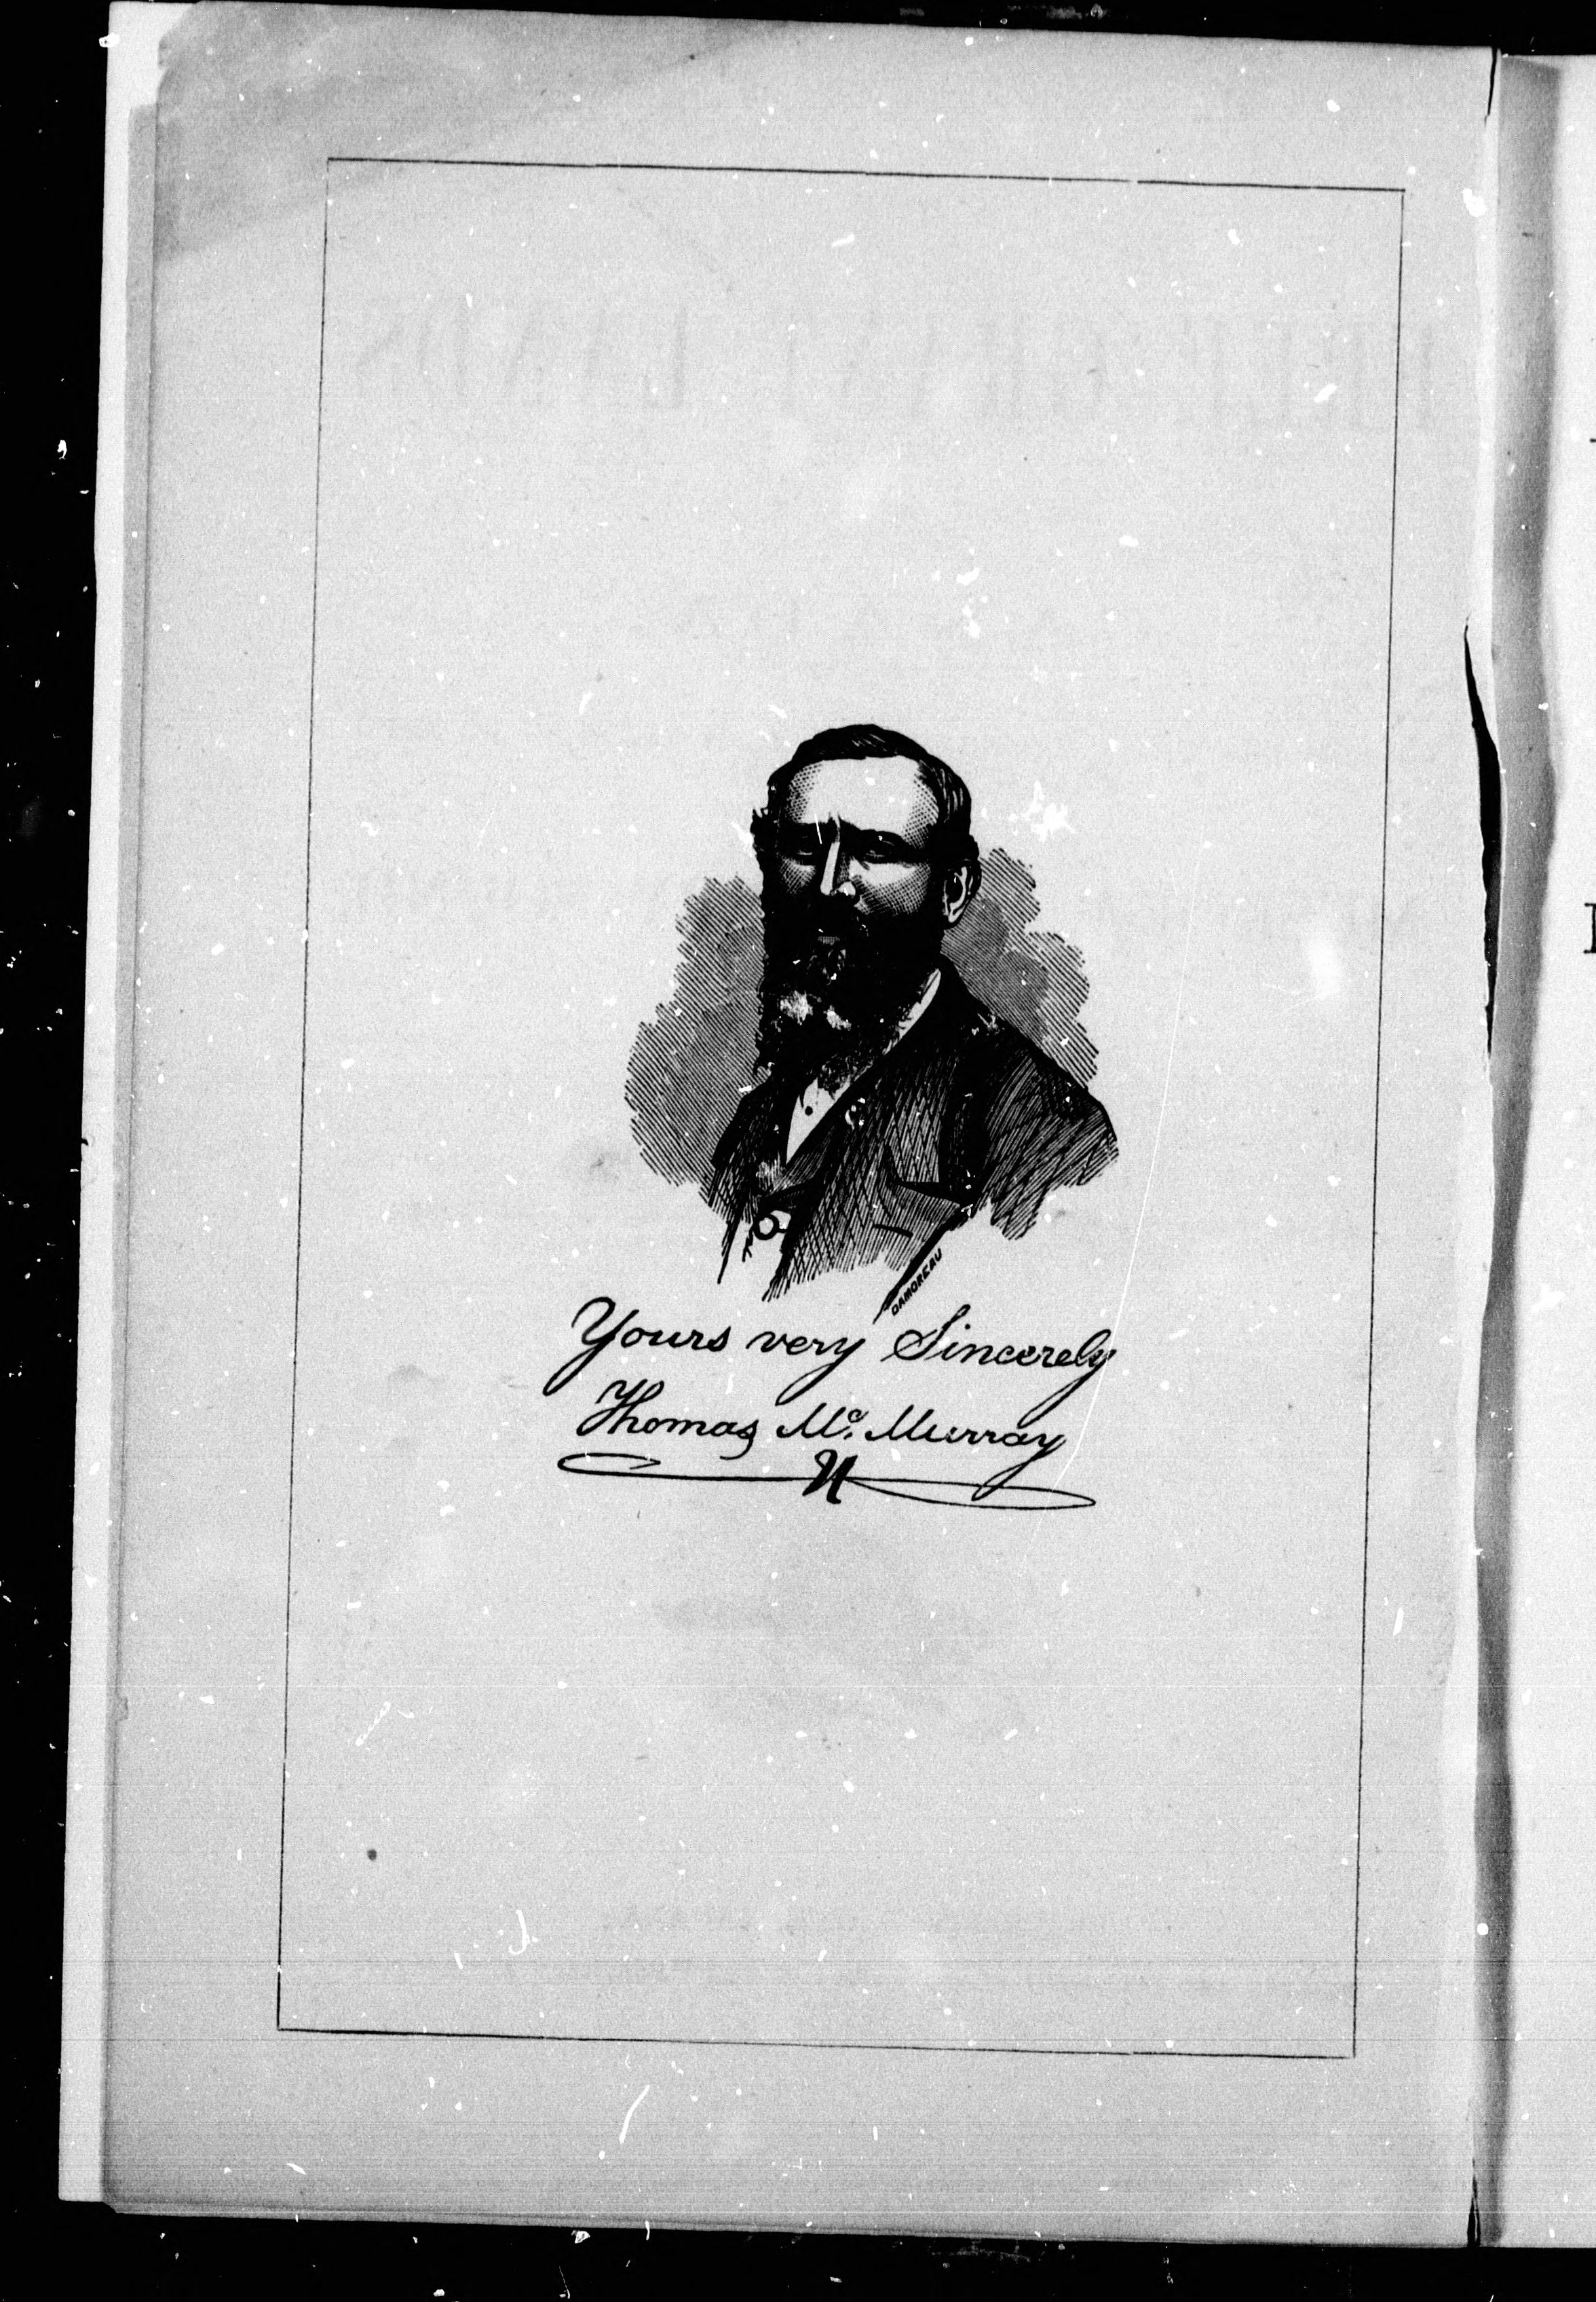 DAMOREAU
Yours very Sincerely
Thomas Mc. Murray